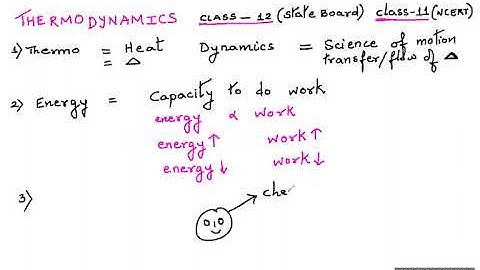 THERMODYNAMICS CLASS - 12 (state Board) class-11 (NCERT)
1) Thermo = Heat Dynamics = Science of motion
= Δ transfer/flow of Δ
2) Energy = Capacity to do work
energy ∝ work
energy ↑ work ↑
energy ↓ work ↓
3)
che